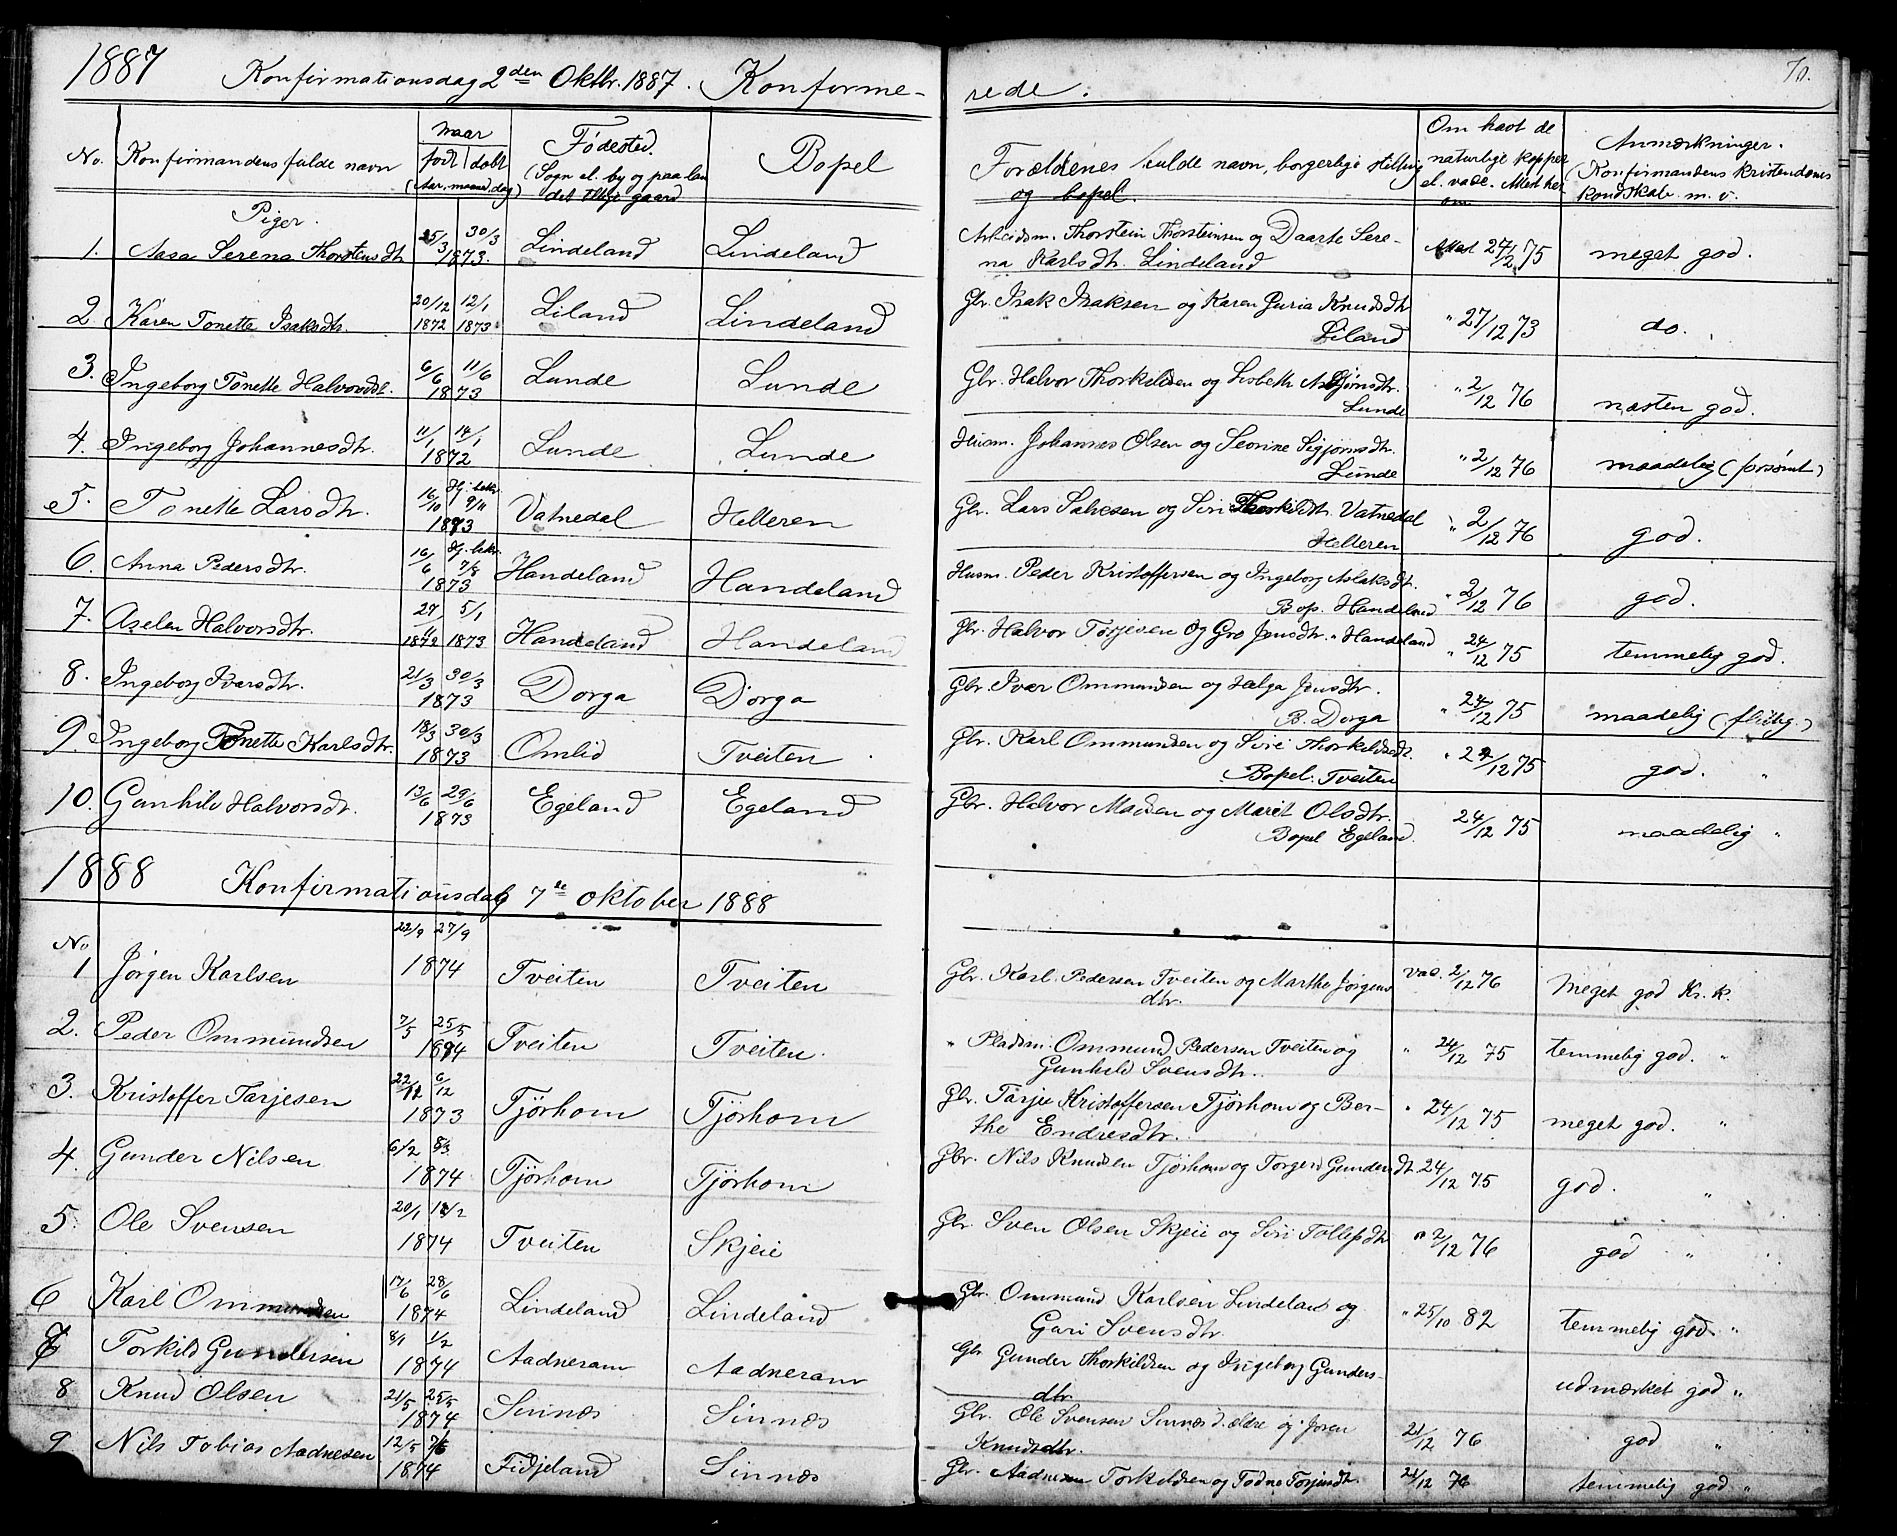 1887 Konfirmationsdag 2den Oktbr. 1887. Konfirme- rede. 70.
No. Konfirmandens fulde navn | naar født | døbt (Aar, maaned, dag) | Fødested. (Sogn el. by og paa lan det tillige gaard | Bopel | Forældrenes fulde navn, borgerlige stilling og bopel. | Om havt de naturlige kopper el. vacc. Attest her om | Anmærkninger. (Konfirmandens kristendoms kundskab m. v.
Piger.
1. Aasa Serena Thorstensdt. 25/3 30/3 1873. Lindeland Lindeland Arbeidsm. Thorstein Thorsteinsen og Daarte Sere- na Karlsdtr. Lindeland Attest 24/2 75 meget god.
2. Karen Tonette Isaksdtr. 20/12 1872 12/1 1873 Liland Lindeland Gbr. Isak Isaksen og Karen Guria Knudsdtr Liland " 27/12 73 do.
3. Ingeborg Tonette Halvorsdt. 6/6 11/6 1873 Lunde Lunde Gbr. Halvor Thorkildsen og Lisbeth Asbjørnsdtr. Lunde " 2/12 76 næsten god.
4. Ingeborg Johannesdtr. 11/1 14/1 1872 Lunde Lunde Husm. Johannes Olsen og Seorine Sigjørnsdtr. Lunde " 2/12 76 maadelig (forsømt)
5. Tonette Larsdtr. 16/10 Hj. bekr. 9/11 1873 Vatnedal Helleren Gbr. Lars Salvesen og Siri Thorkildtr. Vatnedal Helleren " 2/12 76 god.
6. Anna Pedersdtr. 16/6 Hj. bekr. 7/8 1873 Handeland Handeland Husm. Peder Kristoffersen og Ingeborg Aslaksdt. Bop. Handeland " 2/12 76 god.
7. Aselen Halvorsdtr. 1872 5/1 1873 Handeland Handeland Gbr. Halvor Torjesen og Gro Jonsdtr. " Handeland " 24/12 75 temmelig god.
8. Ingeborg Ivarsdtr. 21/3 30/3 1873 Dorga Dorga Gbr. Ivar Ommundsen og Helga Jonsdtr. B. Dorga " 24/12 75 maadelig (flittig.)
9. Ingeborg Tonette Karlsdtr. 18/3 30/3 1873 Omlid Tveiten Gbr. Karl Ommundsen og Siri Thorkildsdt. Bopel. Tveiten " 24/12 75 god. "
10. Gunhild Halvorsdtr. 13/6 29/6 1873 Egeland Egeland Gbr. Halvor Madsen og Marit Olsdtr. Bopel Egeland 24/12 75 maadelig "
1888 Konfirmationsdag 7de oktober 1888
No
1 Jørgen Karlsen 22/9 27/9 1874 Tveiten Tveiten Gbr. Karl Pedersen Tveiten og Marthe Jørgens dtr. vac. 2/12 76 Meget god Kr. k.
2. Peder Ommundsen 7/5 25/5 1874 Tveiten Tveiten. " Pladsm. Ommund Pedersen Tveiten og Gunhild Svensdtr. " 24/12 75 temmelig god. "
3. Kristoffer Tarjesen 6/12 1873 Tjørhom Tjørhom Gbr. Tarjei Kristoffersen Tjørhom og Ber- the Endresdtr. " 24/12 75 meget god. "
4. Gunder Nilsen 6/2 8/3 1874 Tjørhom Tjørhom Gbr. Nils Knudsen Tjørhom og Torgerd Gundersdt 24/12 75 god. "
5. Ole Svensen 20/1 1874 Tveiten Skjeie Gbr Sven Olsen Skjeie og Siri Tollefsdtr " 2/12 76 god "
6 Karl Ommundsen 17/6 28/6 1874 Lindeland Lindeland Gbr. Ommund Karlsen Lindeland og Guri Svensdtr. " 25/10 82 temmelig god. "
7 Torkild Gundersen 8/1 1/2 1874 Aadneram Aadneram Gbr Gunder Thorkildsen og Ingeborg Gunders- dtr. udmærket god "
8 Knud Olsen 21/5 25/5 1874 Sinnæs Sinnæs Gbr. Ole Svensen Sinnæs d. ældre og Joren Knudsdtr. 21/12 76 god "
9 Nils Tobias Aadnesen 12/5 1874 Fidjeland Sinnæs Gbr. Aadne Torkildsen og Todne Torjusdt. 21/12 76 temmelig god "